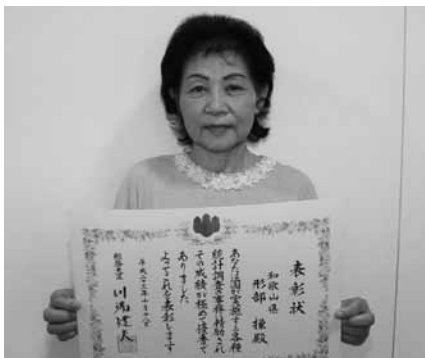 表彰状
和歌山県
形部 操殿
あなたは国が実施する各種
統計調査事務に精励され
その成績が極めて優秀で
ありました
よってこれを表彰します
平成二十三年
総務大臣
川端達夫